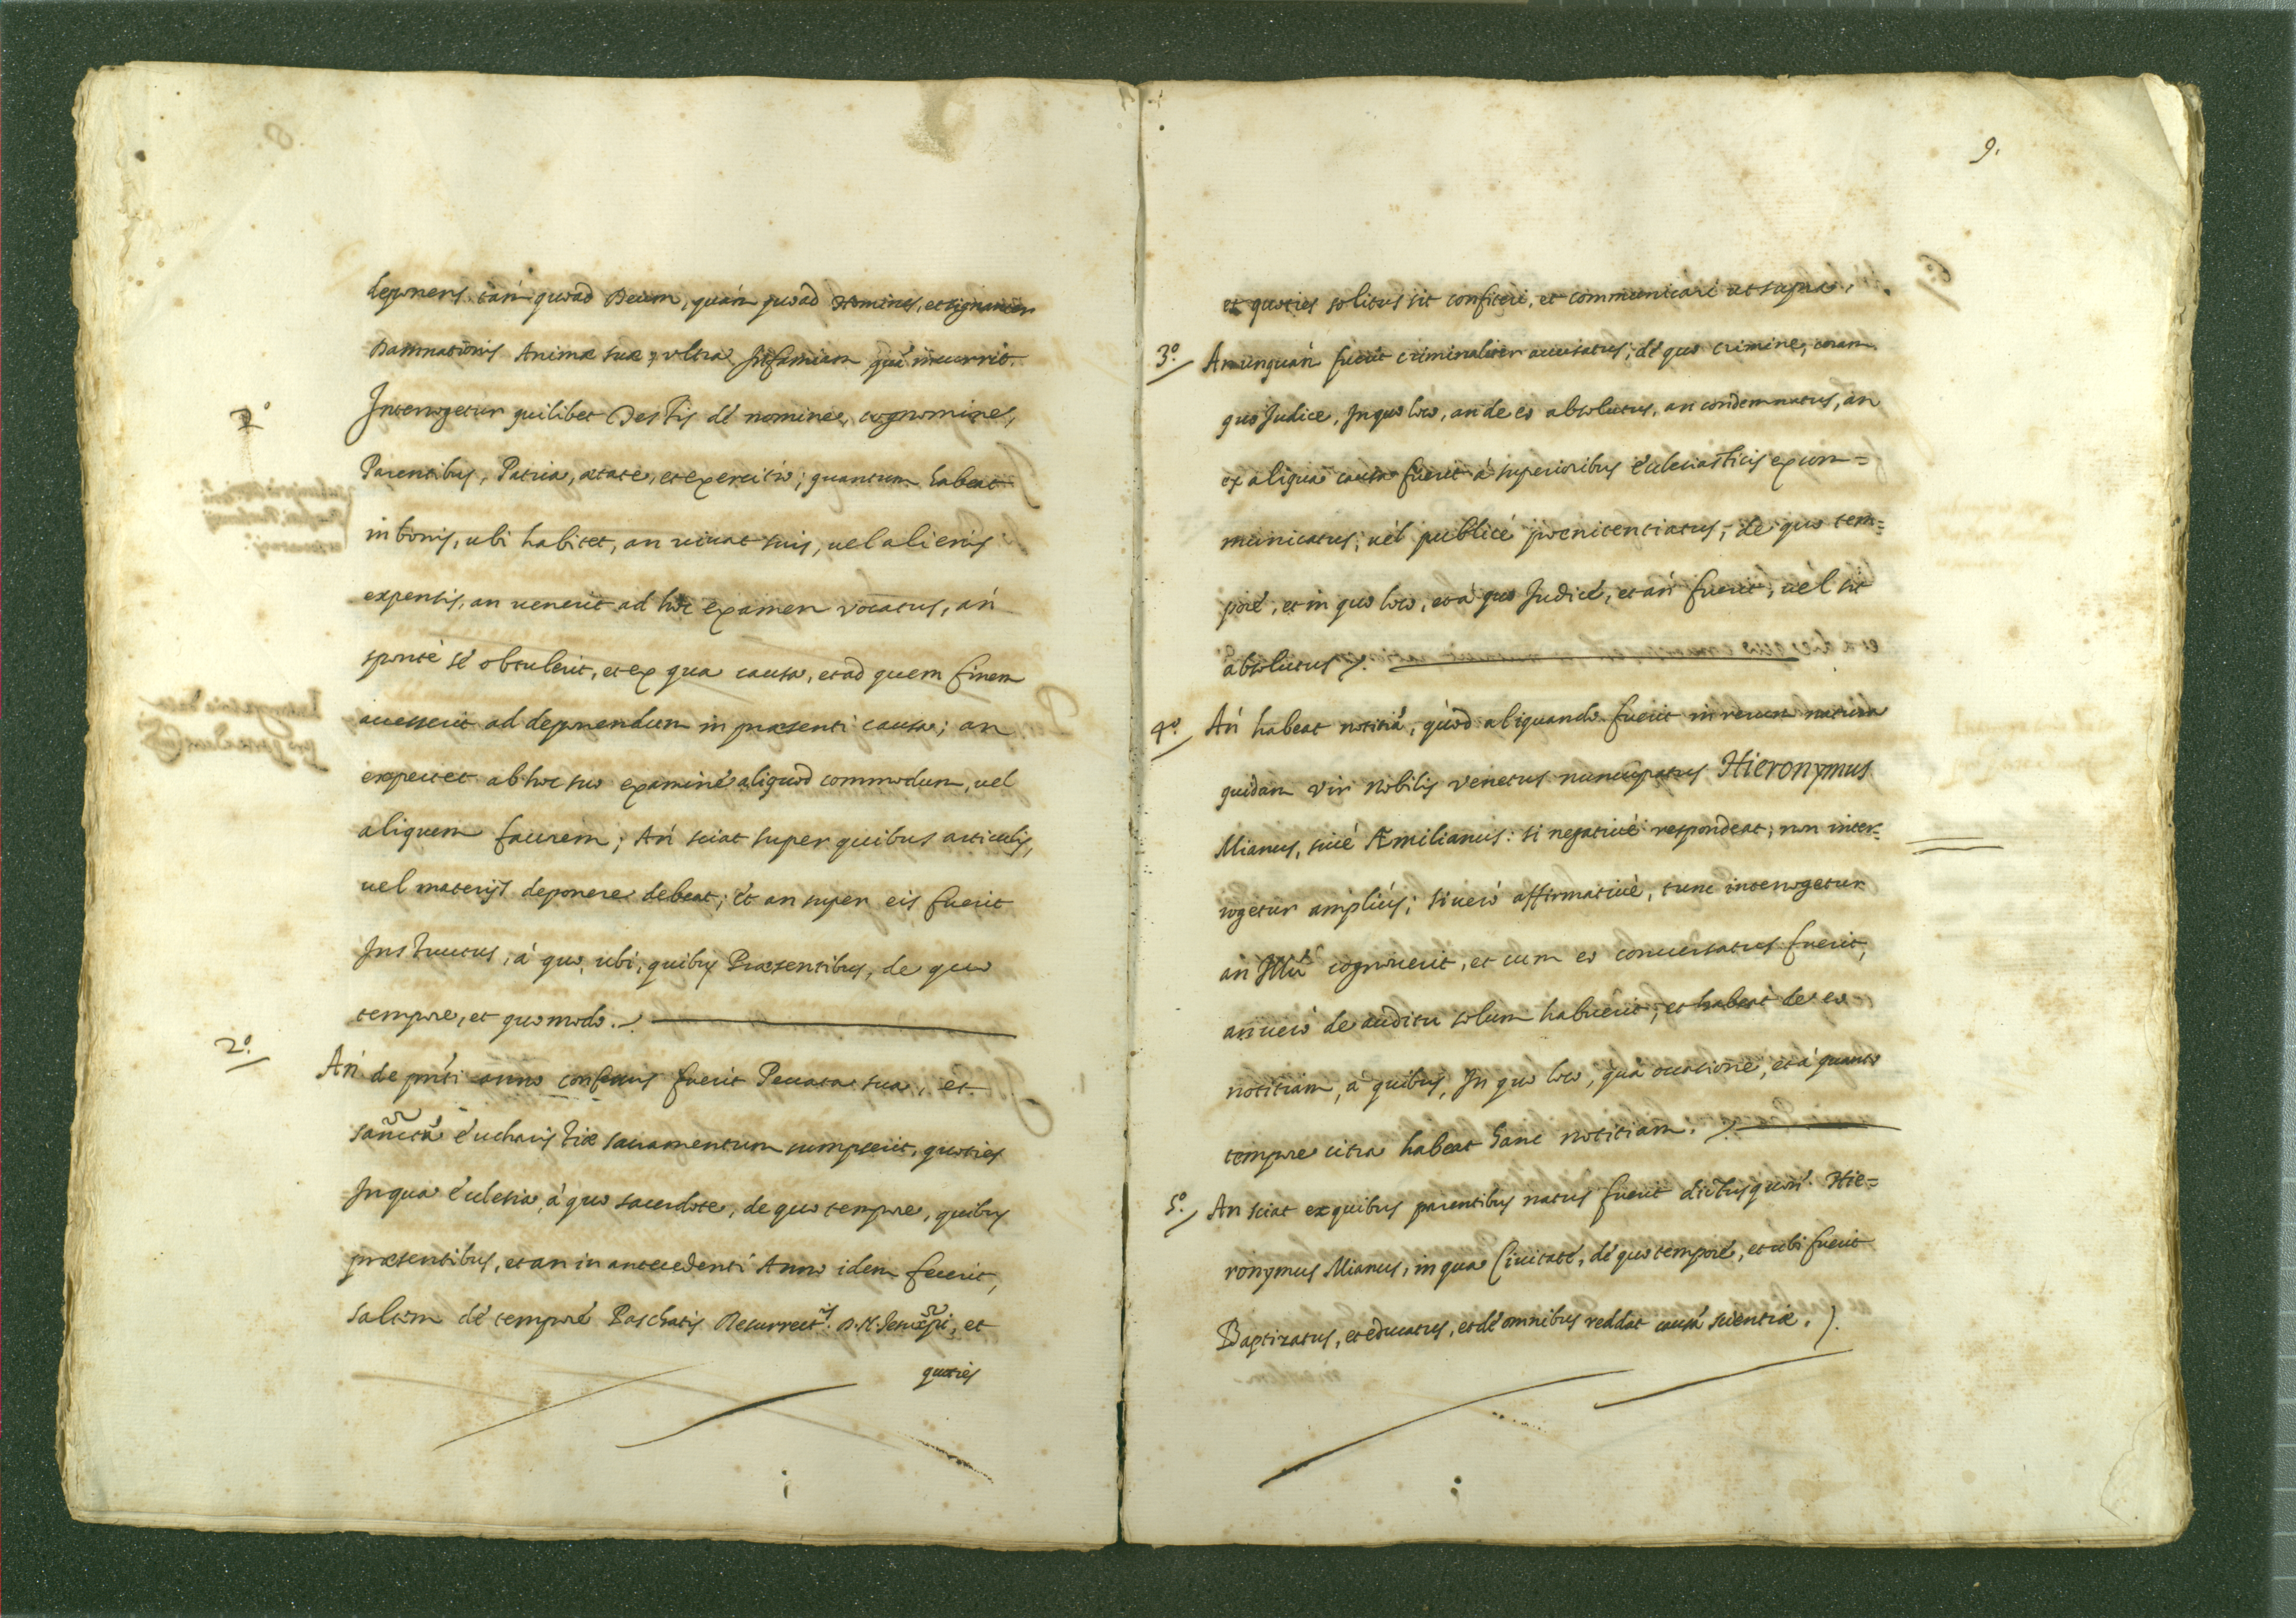 deponens tàm quoad Deum, quàm quoad Homines, et signanter
Damnationis Animæ suæ, vltra Infamiam quã incurrit.
1º
Interrogetur quilibet Testis de nomine, cognomine,
Parentibus, Patria, ætate, et exercitio; quantum habeat
in bonis, ubi habitet, an viuat suis, uel alienis
expensis, an uenerit ad hoc examen vocatus, an
sponte se obtulerit, et ex qua causa, et ad quem finem
accesserit ad deponendum in præsenti causa; an
expectet ab hoc suo examine aliquod commodum, uel
aliquem fauorem; An sciat super quibus articulis,
uel materijs deponere debeat; et an super eis fuerit
Instructus, à quo, ubi, quibus Præsentibus, de quo
tempore, et quomodo.
2º.
An de pñti anno confessus fuerit Peccata sua, et
sanctã Eucharistiæ sacramentum sumpserit, quoties
In qua Ecclesia, à quo sacerdote, de quo tempore, quibus
præsentibus, et an in antecedenti Anno idem fecerit,
saltem de tempore Paschatis Resurrect.is D. N. et
quoties
9.
et quoties solitus sit confiteri, et communicari ut supra.
3º.
An unquàm fuerit criminaliter accusatus; de quo crimine, coram
quo Judice, In quo loco, an de eo absolutus, an condemnatus, an
ex aliqua causa fuerit à superioribus Ecclesiasticis excom=
municatus; uel publicè pœnitentiatus; de quo tem=
pore, et in quo loco, et à quo Judice, et an fuerit, uel sit
absolutus.
4º.
An habeat notitiã, quod aliquando fuerit in rerum natura
quidam Vir Nobilis Venetus nuncupatus Hieronymus
Mianus, siue Æmilianus: si negatiuè respondeat; non inter=
rogetur ampliùs; si uerò affirmatiuè, tunc interrogetur
an Illũ cognouerit, et cum eo conuersatus fuerit,
an uerò de auditu solum habuerit, et habeat de eo
notitiam, à quibus, In quo loco, qua occasione, et à quanto
tempore citra habeat hanc notitiam.
5º.
An sciat ex quibus parentibus natus fuerit dictus quon. Hie=
ronymus Mianus, in qua Ciuitate, de quo tempore, et ubi fuerit
Baptizatus, et educatus, et de omnibus reddat causã scientiæ.